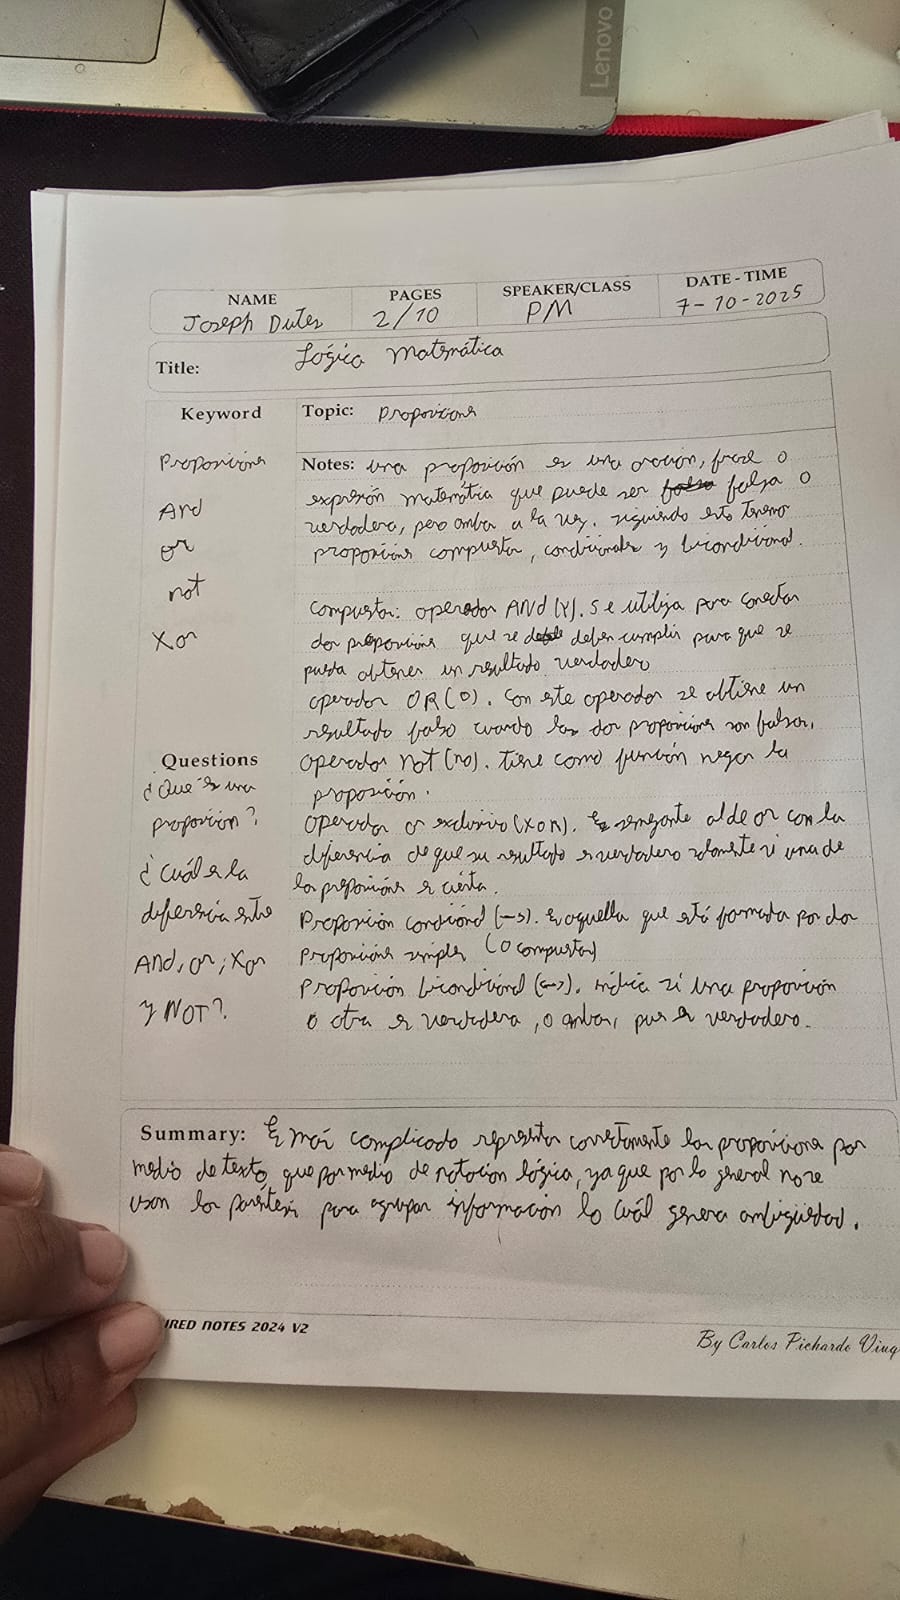 Lenovo
NAME
Joseph Dutes
PAGES
2/10
SPEAKER/CLASS
PM
DATE - TIME
7-10-2025
Title: Lógica Matemática
Keyword
Proposicions
And
or
not
Xor
Questions
¿Que es una
proporcion?
¿cuál es la
diferencia entre
And, or, Xor
y NOT?
Topic: Proposicions
Notes: una proposición es una oración, frase o
expresión matemática que puede ser falsa o
verdadera, pero ambas a la vez. siguiendo esto tenemos
proposicions compuestas, condicionales y bicondicional.
Compuestas: operador AND (Y). Se utiliza para conectar
dos proposicions que se deben cumplir para que se
pueda obtener un resultado verdadero
operador OR (O). Con este operador se obtiene un
resultado falso cuando las dos proposicions son falsas.
Operador not (no). tiene como función negar la
proposición.
Operador or exclusivo (XOR). Es semejante al de or con la
diferencia de que su resultado es verdadero solamente si una de
las proposicions es cierta.
Proposición condicional (->). Es aquella que está formada por dos
Proposicions simples (o compuestas)
Proposición bicondicional (<->). indica si una proposición
o otra es verdadera, o ambas, pues es verdadero.
Summary: Es más complicado representar correctamente las proposiciones por
medio de texto, que por medio de notacion lógica, ya que por lo general no se
usan los paréntesis para agrupar información lo cuál genera ambigüedad.
IRED NOTES 2024 V2
By Carlos Pichardo Viuq